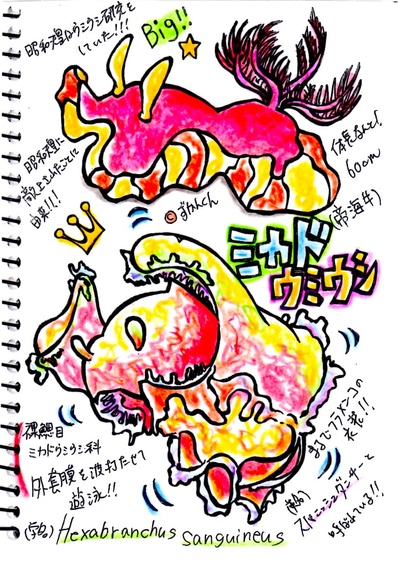 昭和天皇はウミウシ研究を
していた!!!
Big!!
昭和天皇に
献上されたことに
由来!!!
体長なんと!
60cm
(帝海牛)
©ずかんくん
ミカド
ウミウシ
裸鰓目
ミカドウミウシ科
外套膜を波打たせて
遊泳!!
まるでフラメンコの
衣装!!
スパニッシュダンサーと
呼ばれている!!
(学名) Hexabranchus sanguineus